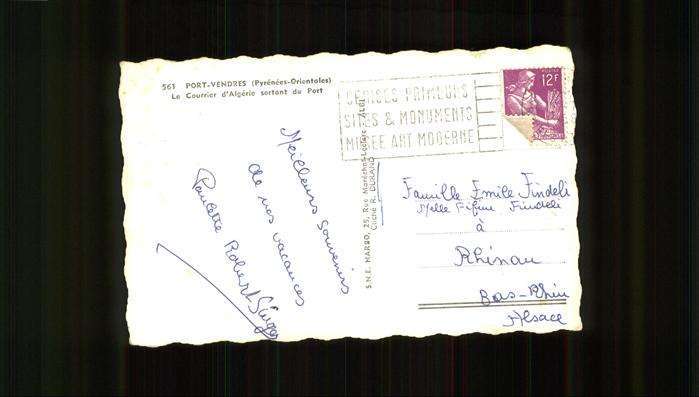 561 PORT-VENDRES (Pyrénées-Orientales)
Le Courrier d'Algérie sortant du Port
CERISES PRIMEURS
SITES & MONUMENTS
MUSEE ART MODERNE
12F
Meilleurs souvenirs
de nos vacances
Paulette Robert Singer
S.N.E. MARBO, 25, Rue Maréchal-Leclerc - ALBI
Cliché R. DURAND
Famille Emile Findeli
Melle Findeli
à
Rhinau
Bas-Rhin
Alsace